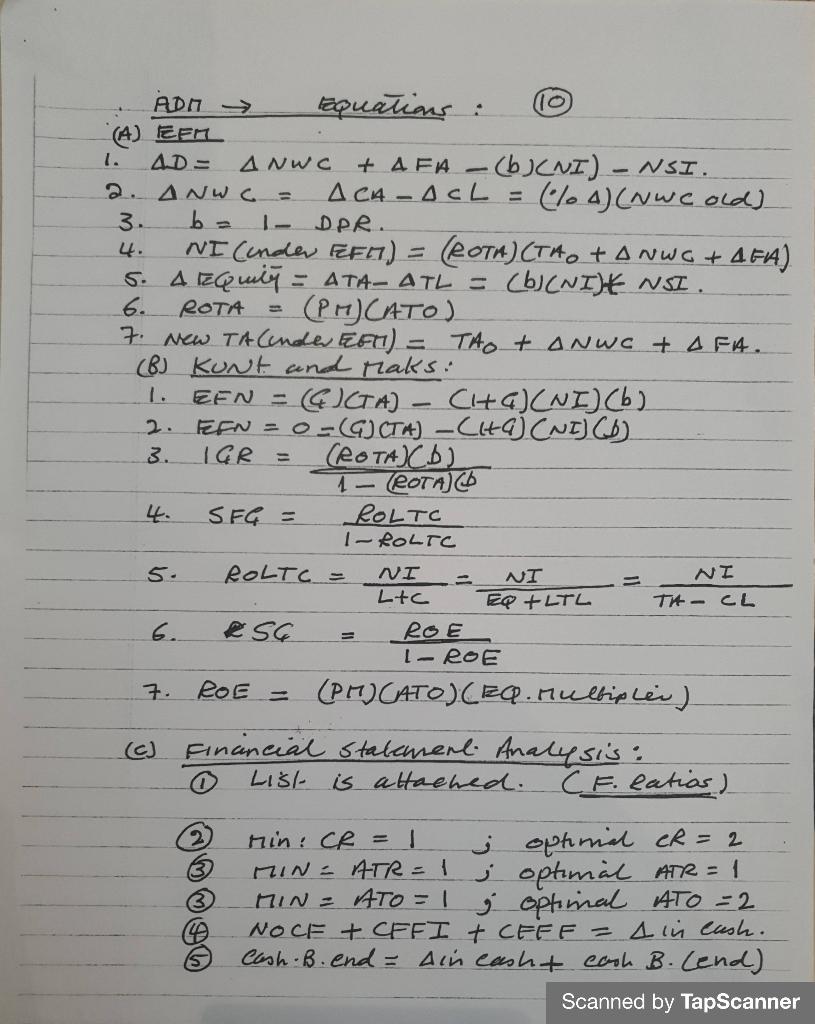 ADM → Equations : (10)
(A) EFM
1. ΔD = Δ NWC + Δ FA – (b)(NI) – NSI.
2. Δ NWC = Δ CA – Δ CL = (% Δ)(NWC old)
3. b = 1 – DPR.
4. NI (under EFM) = (ROTA)(TA₀ + Δ NWC + Δ FA)
5. Δ Equity = ΔTA – ΔTL = (b)(NI) + NSI.
6. ROTA = (PM)(ATO)
7. New TA (under EFM) = TA₀ + Δ NWC + Δ FA.
(B) Kunt and Maks :
1. EFN = (G)(TA) – (1+G)(NI)(b)
2. EFN = 0 = (G)(TA) – (1+G)(NI)(b)
3. IGR = (ROTA)(b)
1 – (ROTA)(b
4. SFG = ROLTC
1 – ROLTC
5. ROLTC = NI = NI = NI
L+C EQ + LTL TA – CL
6. SG = ROE
1 – ROE
7. ROE = (PM)(ATO)(EQ. Multiplier)
(C) Financial Statement Analysis :
① List is attached. (F. Ratios)
② Min : CR = 1 ; optimal CR = 2
③ MIN = ATR = 1 ; optimal ATR = 1
③ MIN = ATO = 1 ; optimal ATO = 2
④ NOCF + CFFI + CFFF = Δ in cash.
⑤ Cash. B. end = Δ in cash + cash B. (end)
Scanned by TapScanner